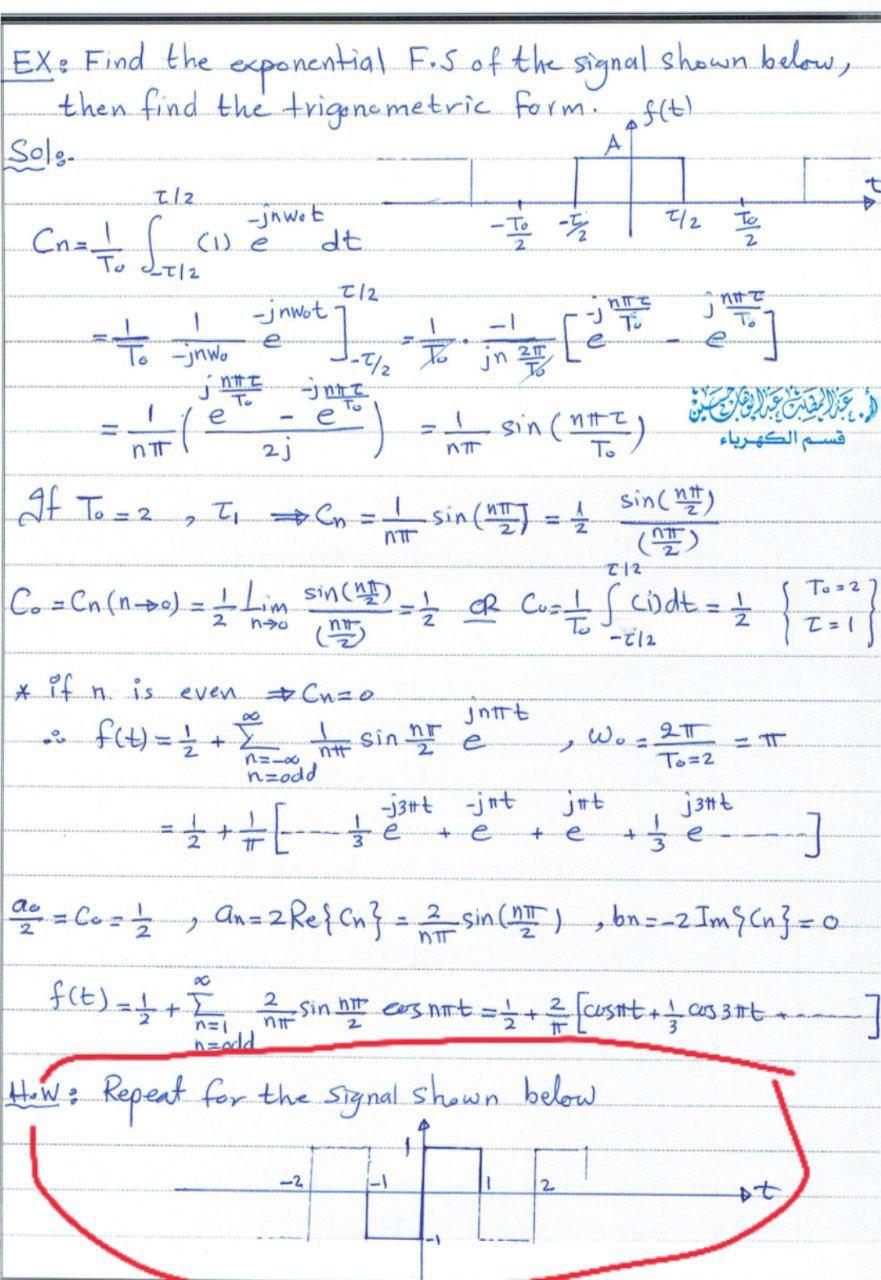 EX: Find the exponential F.S of the signal shown below,
then find the trigonometric form.
f(t)
Sol:-
A
t
-T₀/2 -τ/2 τ/2 T₀/2
Cn = 1/T₀ ∫_{-τ/2}^{τ/2} (1) e^{-jnw₀t} dt
= 1/T₀ 1/(-jnw₀) e^{-jnw₀t} ]_{-τ/2}^{τ/2} = 1/T₀ · -1/(jn 2π/T₀) [ e^{-j nπτ/T₀} - e^{j nπτ/T₀} ]
= 1/(nπ) ( (e^{j nπτ/T₀} - e^{-j nπτ/T₀}) / 2j ) = 1/(nπ) sin ( nπτ/T₀ )
قسم الكهرباء
If T₀ = 2 , τ₁ ⇒ Cn = 1/(nπ) sin(nπ/2) = 1/2 sin(nπ/2)/(nπ/2)
C₀ = Cn (n→0) = 1/2 Lim_{n→0} sin(nπ/2)/(nπ/2) = 1/2 OR C₀ = 1/T₀ ∫_{-τ/2}^{τ/2} (1)dt = 1/2 { T₀ = 2 τ = 1 }
* if n is even ⇒ Cn = 0
∴ f(t) = 1/2 + Σ_{n=-∞ n=odd}^{∞} 1/(nπ) sin nπ/2 e^{jnπt} , ω₀ = 2π/(T₀=2) = π
= 1/2 + 1/π [ ----- 1/3 e^{-j3πt} + e^{-jπt} + e^{jπt} + 1/3 e^{j3πt} ------ ]
a₀/2 = C₀ = 1/2 , an = 2 Re{Cn} = 2/(nπ) sin(nπ/2) , bn = -2 Im{Cn} = 0
f(t) = 1/2 + Σ_{n=1 n=odd}^{∞} 2/(nπ) sin nπ/2 cos nπt = 1/2 + 2/π [cosπt + 1/3 cos 3πt + ------]
H.W: Repeat for the signal shown below
1
-2 -1 1 2 t
-1